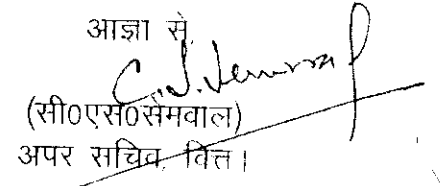 आज्ञा से,
(सी०एस०सेमवाल)
अपर सचिव, वित्त।